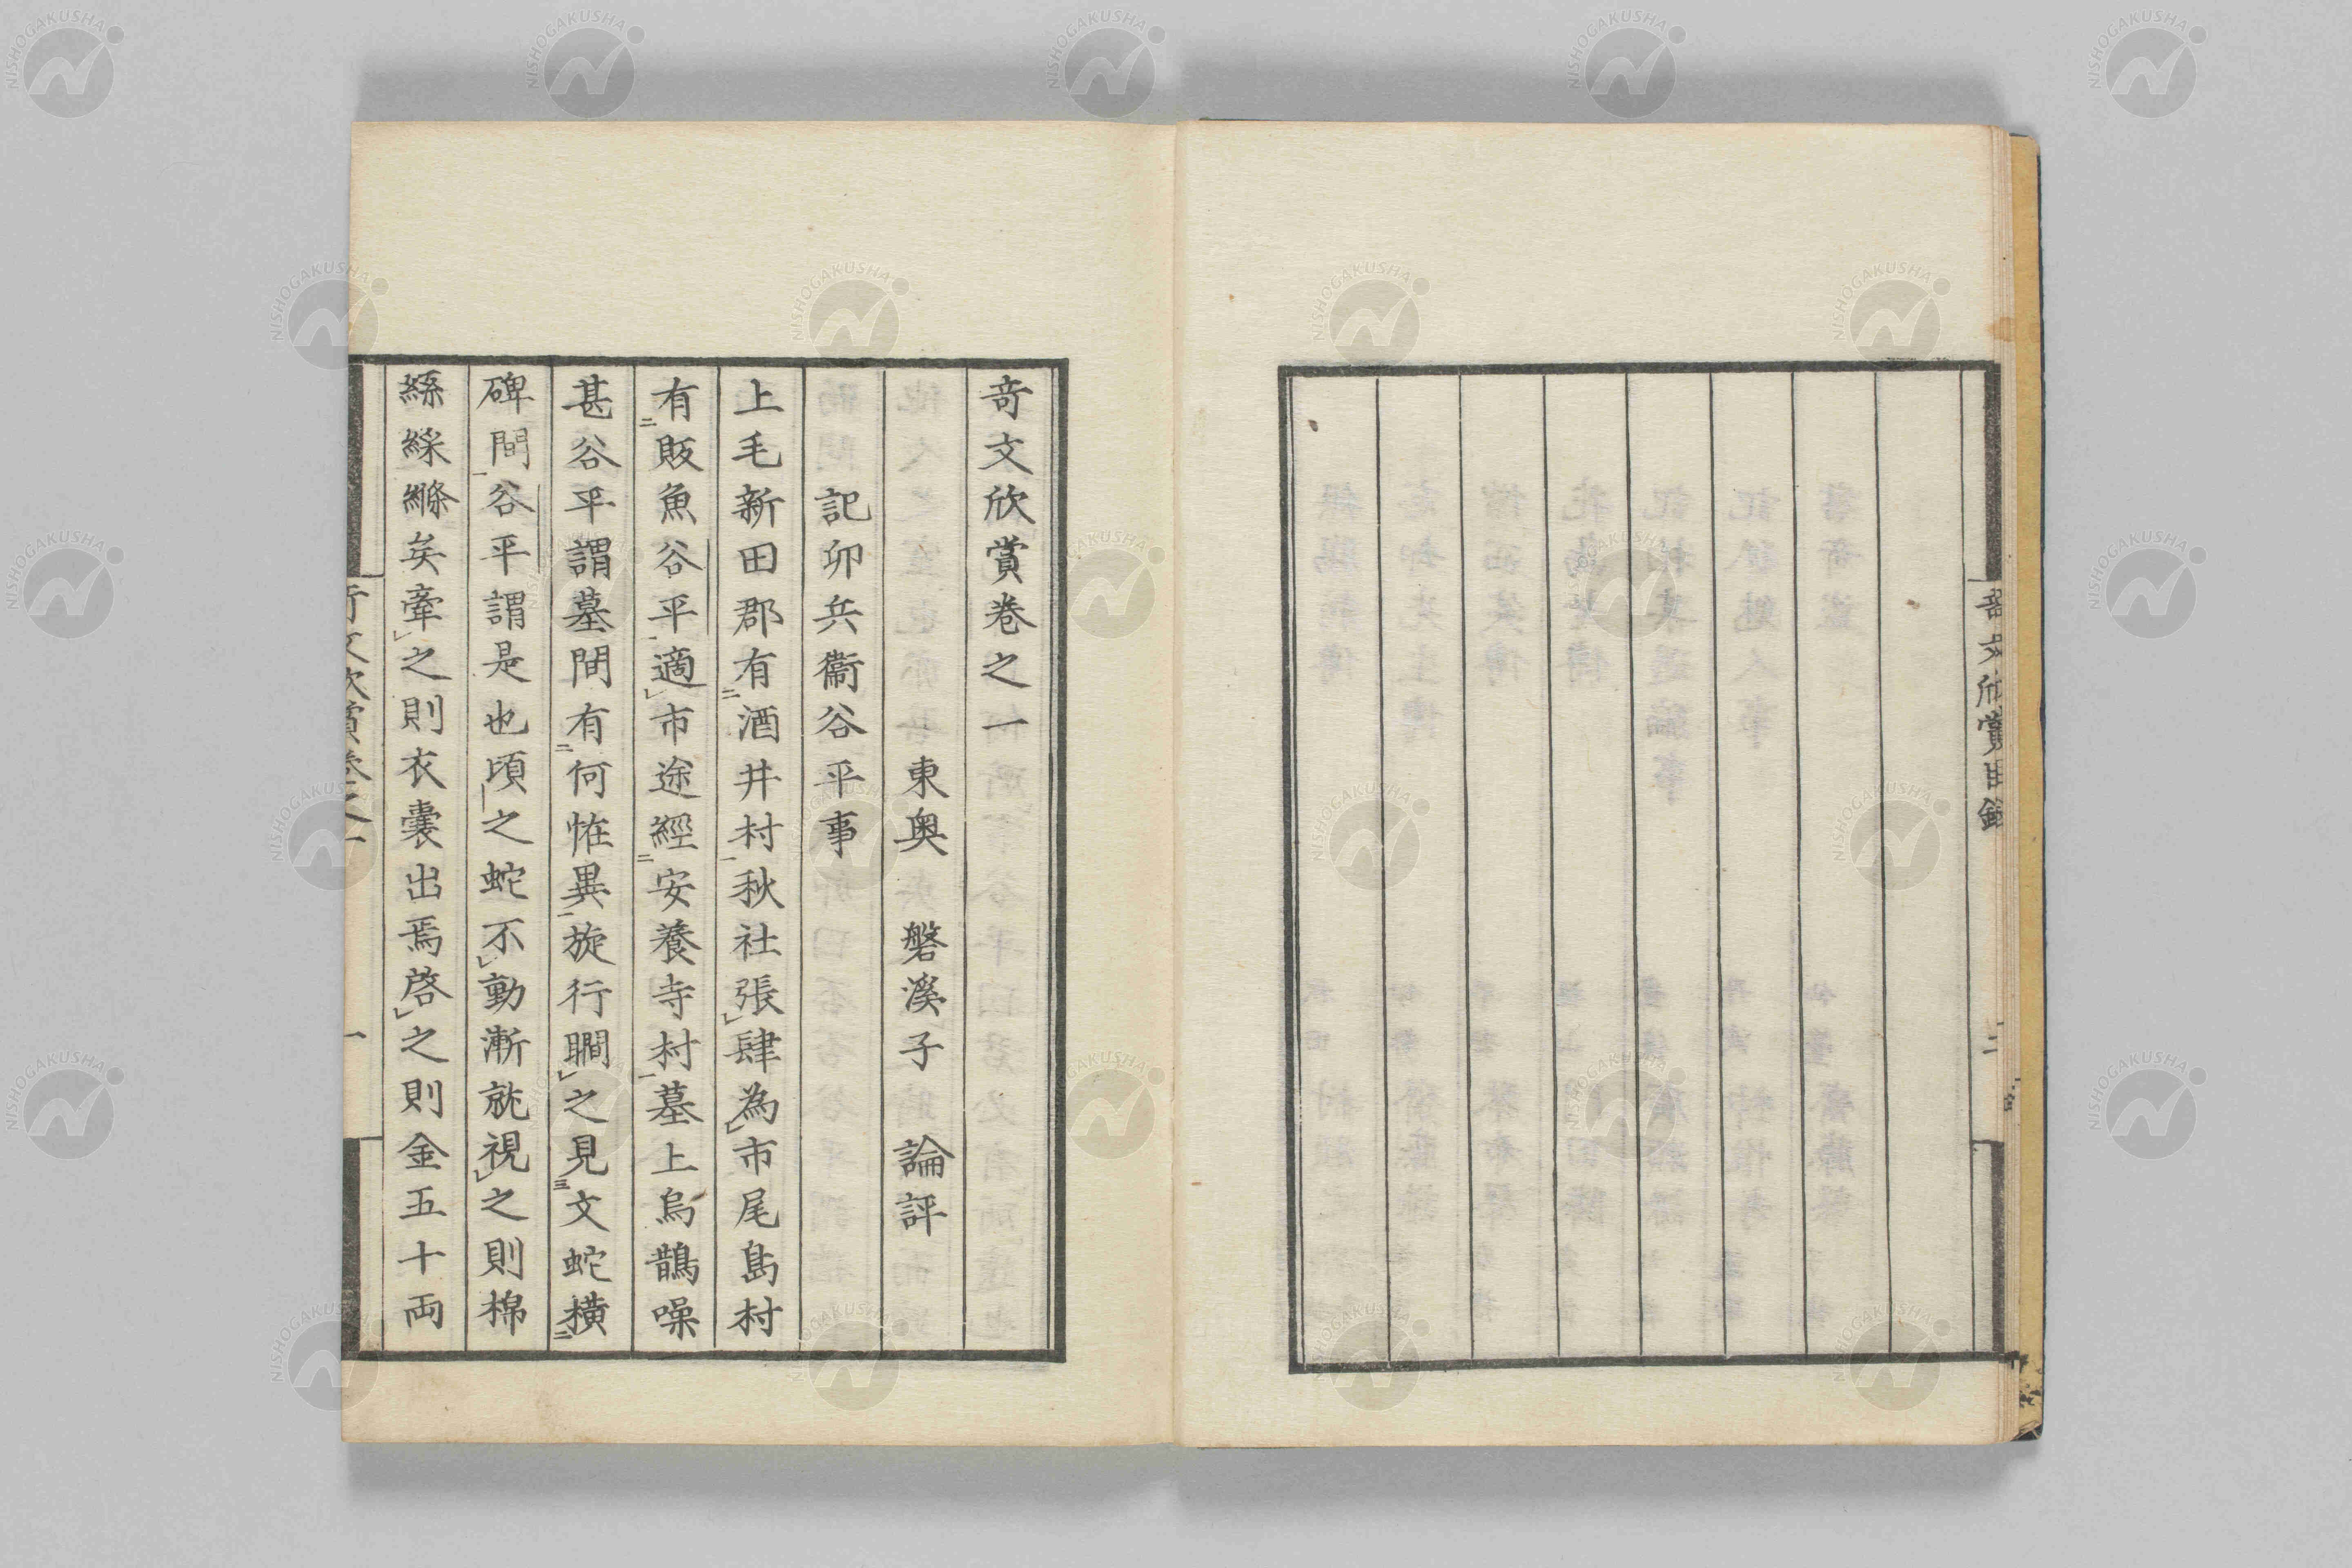 奇文欣賞目錄
二
奇文欣賞卷之一
東奥 磐溪子 論評
記卯兵衞谷平事
上毛新田郡有酒井村秋社張肆為市尾島村
有販魚谷平適市途經安養寺村墓上烏鵲噪
甚谷平謂墓間有何恠異旋行瞯之見文蛇橫
碑間谷平謂是也頃之蛇不動漸就視之則棉
緜綵縧矣牽之則衣囊出焉啓之則金五十両
奇文欣賞卷之一
一
NISHOGAKUSHA